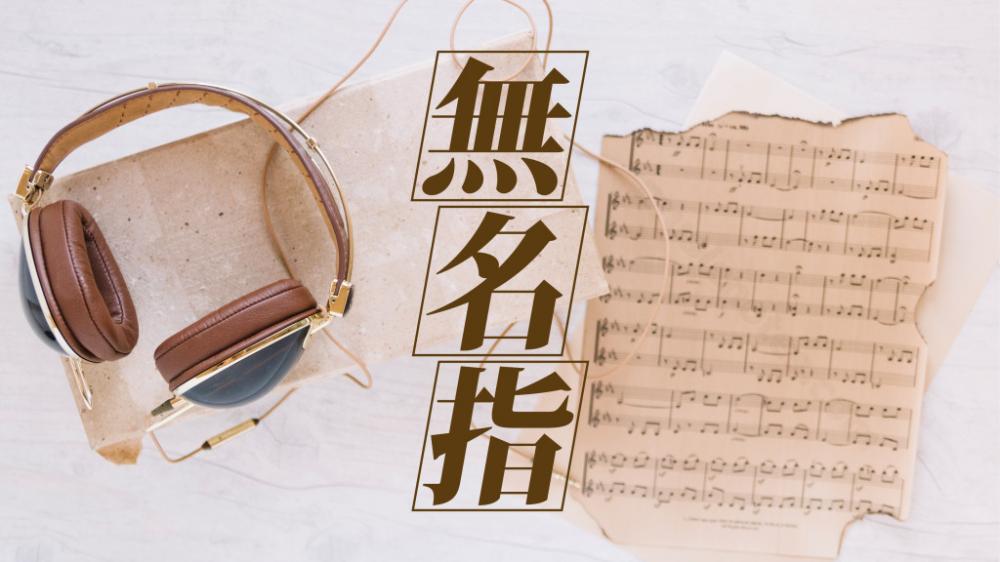 無
名
指